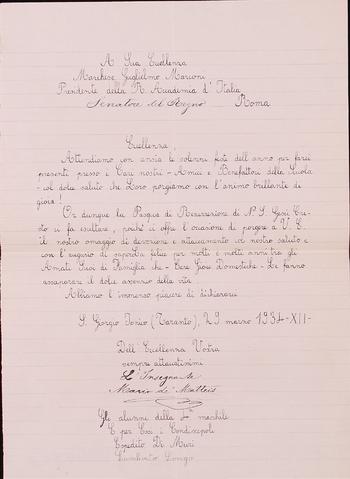 A Sua Eccellenza
Marchese Guglielmo Marconi
Presidente della R. Accademia d'Italia
Senatore del Regno Roma
Eccellenza,
Attendiamo con ansia le solenni feste dell'anno per farci
presenti presso i Cari nostri - Amici e Benefattori della Scuola
- col dolce saluto che Loro porgiamo con l'animo brillante di
gioia!
Or dunque la Pasqua di Resurrezione di N. S. Gesù Cri-
sto ci fa esultare, poichè ci offre l'occasione di porgere a V. E.
il nostro omaggio di devozione e attaccamento col nostro saluto e
con l'augurio di saperla felice per molti e molti anni tra gli
Amati Suoi di Famiglia che - Care Gioie Domestiche - Le fanno
assaporare il dolce della vita.
Abbiamo l'immenso piacere di dichiararci
S. Giorgio Ionico (Taranto), 29 marzo 1934-XII-
Dell'Eccellenza Vostra
sempre affezionatissimi
L'Insegnante
Mario de Matteis
Gli alunni della maschile
E per Essi i Condiscepoli
Espedito Di Muri
Longo